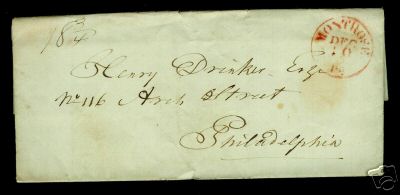 18 3/4
MONTROSE
DEC
Henry Drinker Esqr
No 116 Arch Street
Philadelphia